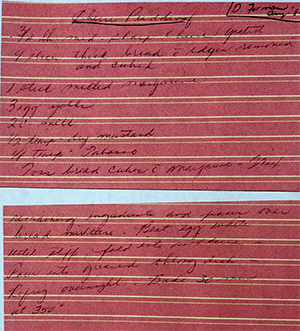 Cheese Pudding
3/4 lb mild sharp cheese, grated
9 slices thick bread, edges removed
and cubed
1 stick melted margarine
3 egg yolks
2 c milk
1/2 teasp dry mustard
1/4 teasp Tabasco
Toss bread cubes & margarine - Mix
remaining ingredients and pour over
bread mixture. Beat egg whites
until stiff, fold into mixture -
Pour into greased oblong dish
Refrig overnight - Bake 30 min
at 350°